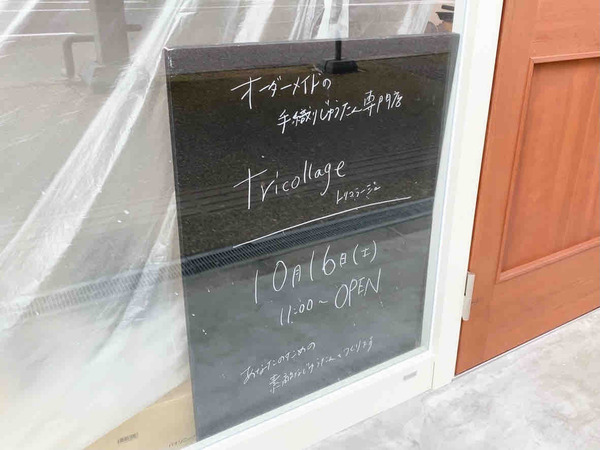 オーダーメイドの
手織りじゅうたん専門店
tricollage
トリコラージュ
10月16日(土)
11:00~OPEN
あなたのための
素敵なじゅうたんをつくります